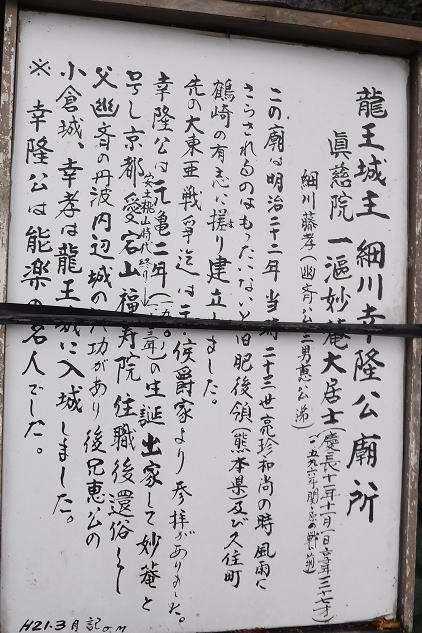 龍王城主 細川幸隆公廟所
眞慈院 一漚妙菴大居士(慶長十一年十一月一日享年三十七才)
細川藤孝(幽斉公二男恵公弟)
この廟は明治二十二年当時二十三世亮珍和尚の時風雨に
さらされるのはもったいないと旧肥後領(熊本県及び久住町
鶴崎の有志に援り建立しました。
先の大東亜戦争迄は元侯爵家より参拝がありました。
幸隆公は元亀二年の生誕出家して妙菴と
安土桃山時代
号し京都愛宕山福寿院住職後還俗し
父幽斉の丹波内辺城の功があり後兄恵公の
小倉城、幸孝は龍王城に入城しました。
※ 幸隆公は能楽の名人でした。
H21.3月記 O.M